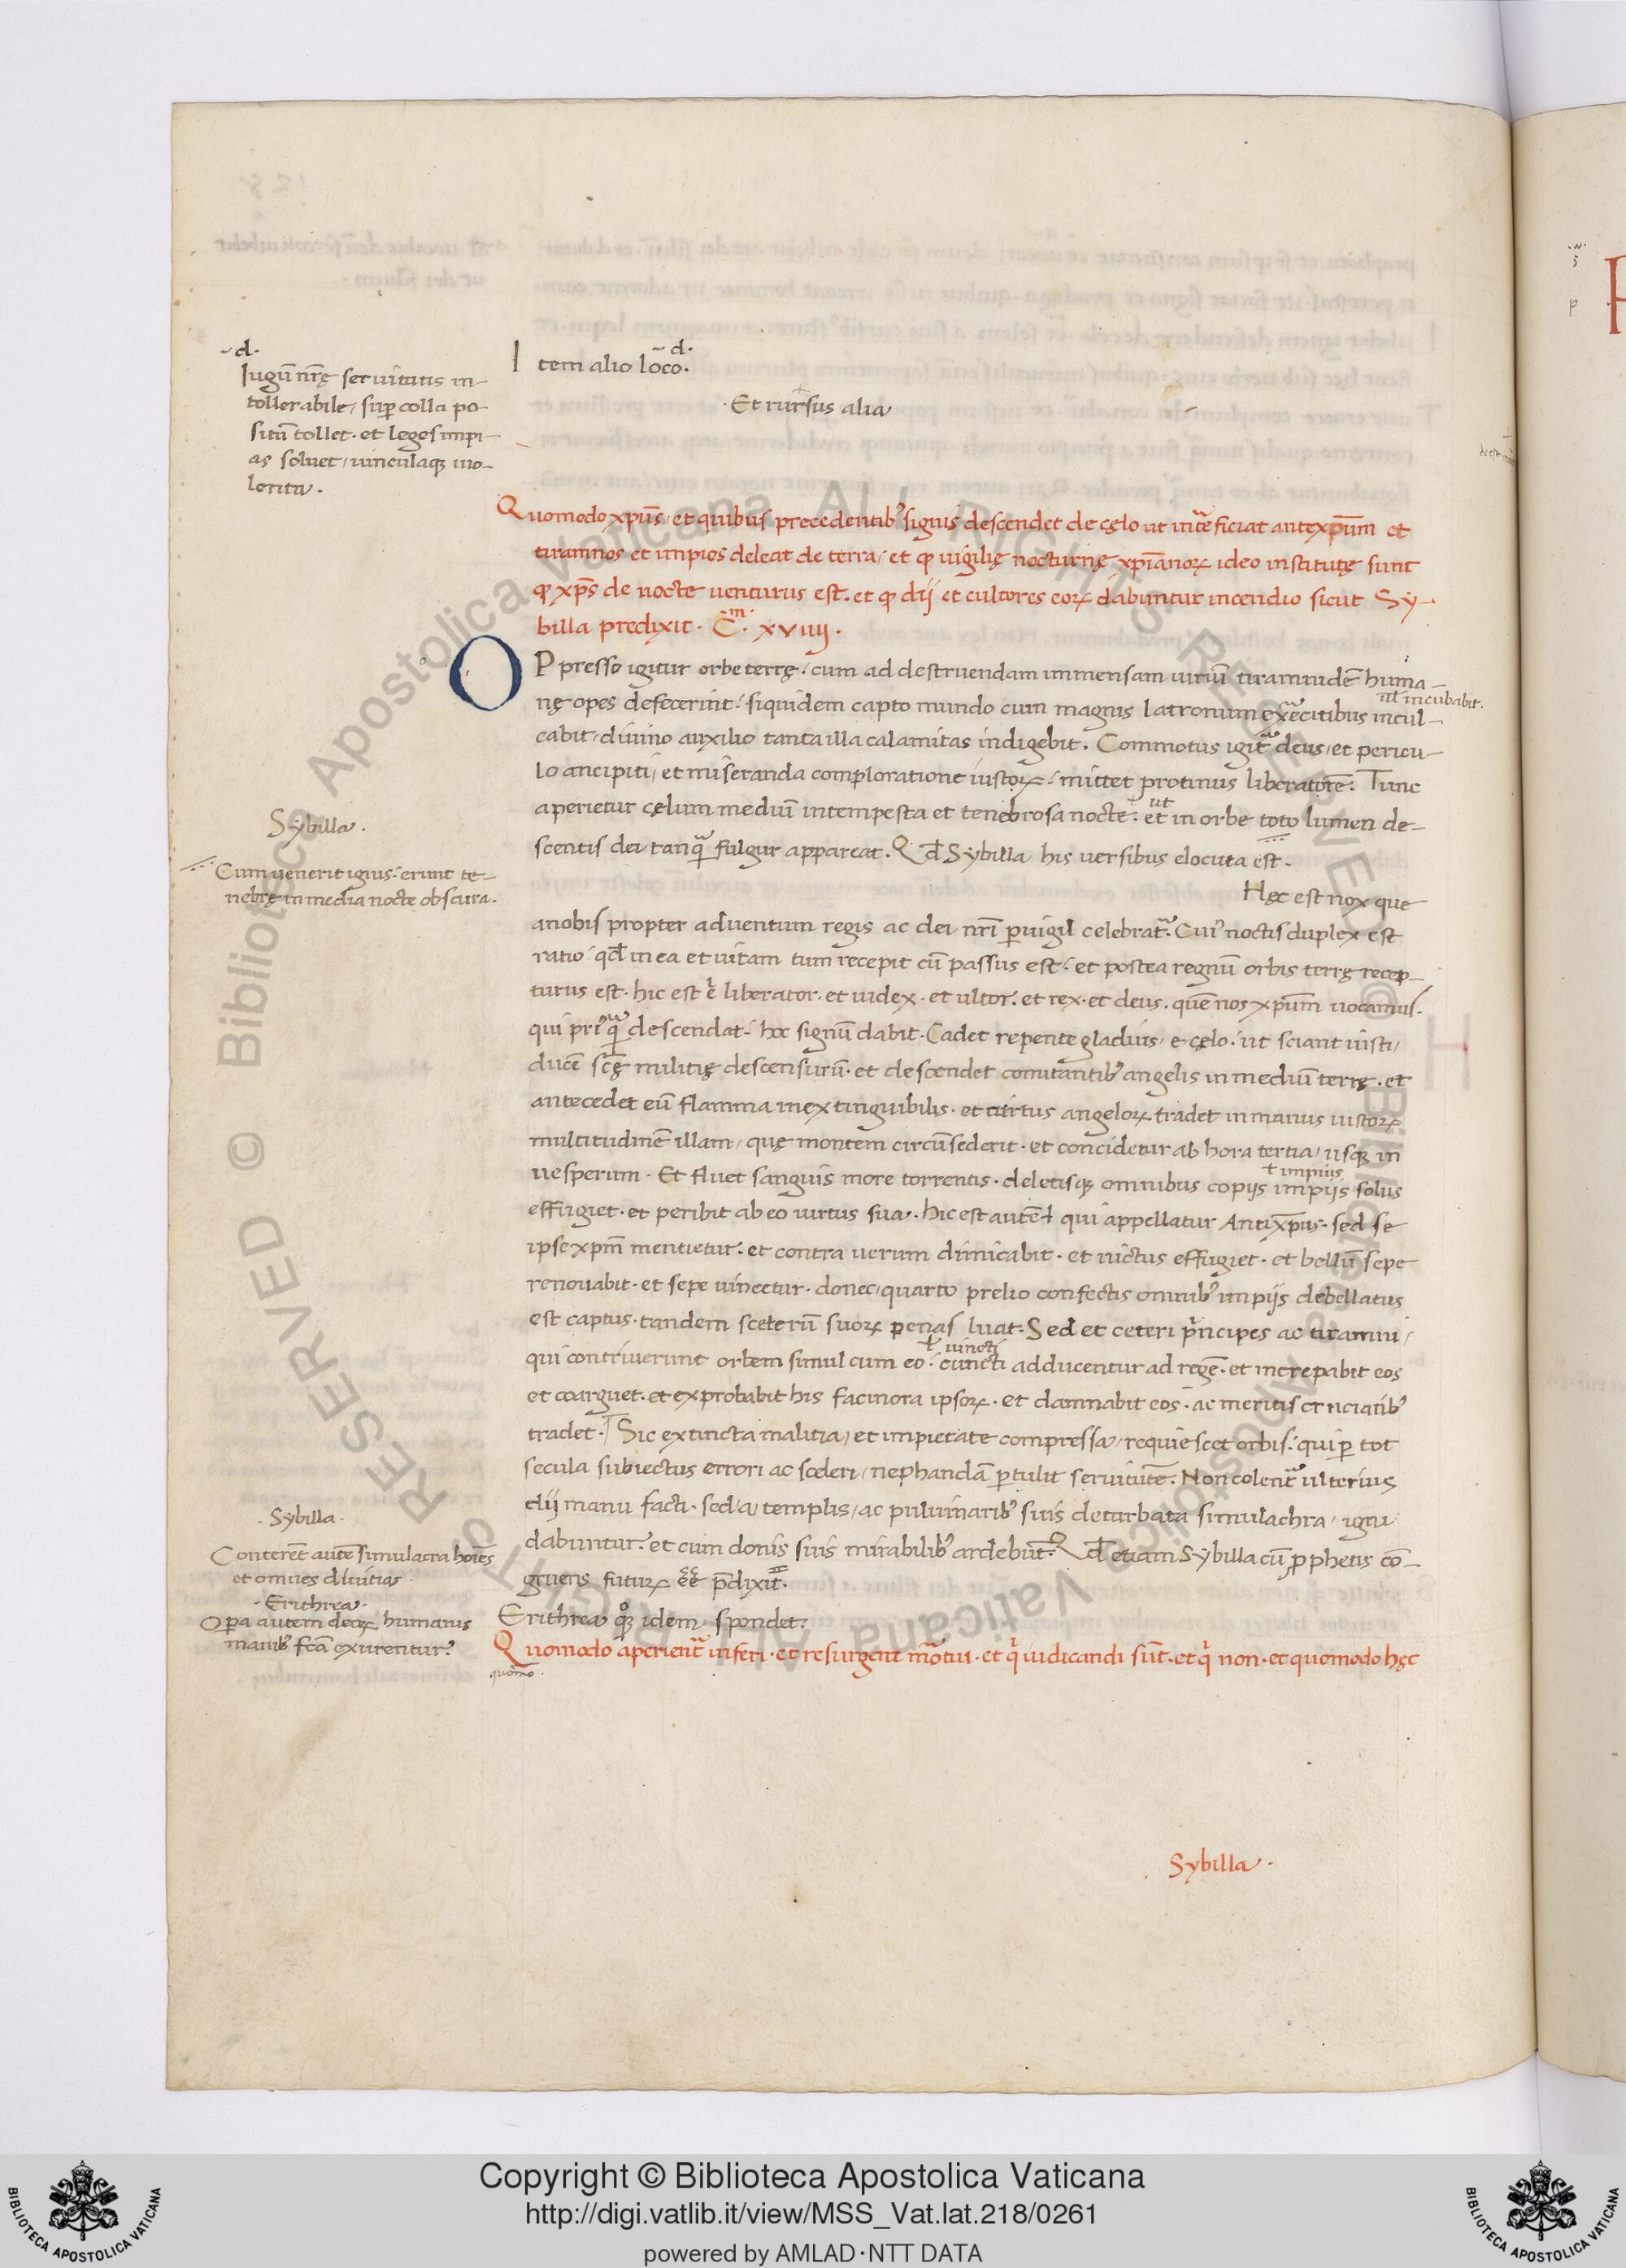 ~d.
Iugū nr̄ę seruitutis in-
tollerabile, suꝑ colla po-
sitū tollet. et leges impi-
as soluet, uinculaqꝫ uio-
lenta.
~d.
Item alio loco.
Et rursus alia
Quomodo xp̄us, et quibus precedentibꝰ signis descendet de cęlo ut interficiat antexp̄um et
tirannos et impios deleat de terra, et ꝙ uigilię nocturnę xp̄ianoꝝ ideo institutę sunt
ꝙ xp̄s de nocte uenturus est. et ꝙ dij et cultores eoꝝ dabuntur incendio sicut Sy-
billa predixit. C.m xviiij.
OPpresso igitur orbe terrę, cum ad destruendam immensam uiriū tirannidē huma-
nę opes defecerint. siquidem capto mundo cum magnis latronum exercitibus incul-
ul' incubabit.
cabit, diuino auxilio tanta illa calamitas indigebit. Commotus igit᷑ deus, et pericu-
lo ancipiti, et miseranda comploratione iustoꝝ, mittet protinus liberatorē. Tunc
aperietur cęlum mediū intempesta et tenebrosa nocte. et in orbe toto lumen de-
ut
scentis dei tanq̄ fulgur appareat. Qd̄ Sybilla his uersibus elocuta est.
Sybilla.
Cum uenerit ignis. erunt te-
nebrę in media nocte obscura.
Hęc est nox que
a nobis propter aduentum regis ac dei nr̄i ꝑuigil celebrat᷑. Cuiꝰ noctis duplex est
ratio. qd̄ in ea et uitam tum recepit cū passus est. et postea regnū orbis terrę recep-
turus est. hic est .n. liberator. et iudex. et ultor. et rex. et deus. quē nos xp̄um uocamus.
qui priꝰq̄ descendat. hoc signū dabit. Cadet repente gladius, e cęlo. ut sciant iusti,
ducē sc̄ę militię descensurū. et descendet comitantibꝰ angelis in mediū terrę. et
antecedet eū flamma inextinguibilis. et uirtus angeloꝝ tradet in manus iustoꝝ
multitudinē illam, quę montem circūsederit. et concidetur ab hora tertia, usqꝫ in
uesperum. Et fluet sanguis more torrentis. deletisqꝫ omnibus copijs impijs solus
ł impius
effugiet. et peribit ab eo uirtus sua. hic est autē qui appellatur Antixp̄us. sed se
ipse xpm̄ mentietur. et contra uerum dimicabit. et uictus effugiet. et bellū sepe
renouabit. et sepe uincetur. donec, quarto prelio confectis omnibꝰ impijs debellatus
est captus. tandem scelerū suoꝝ penas luat. Sed et ceteri principes ac tiranni,
qui contriuerunt orbem simul cum eo. cuncti adducentur ad regē. et increpabit eos
ł uincti
et coarguet. et exprobabit his facinora ipsoꝝ. et damnabit eos. ac meritis cruciatibꝰ
tradet. Sic extincta malitia, et impietate compressa, requiescet orbis. qui ꝑ tot
secula subiectus errori ac sceleri, nephandā ꝑtulit seruitutē. Non colent᷑ ulterius
dij manu facti. sed a templis, ac puluinaribꝰ suis deturbata simulachra, igni
dabuntur. et cum donis suis mirabilibꝰ ardebūt. Qd̄ etiam Sybilla cū ꝓphetis cō-
gruens futuꝝ eē p̄dixit.
Sybilla.
Conterent autē simulacra hoīes
et omnes diuitias.
Erithrea.
Opa autem deoꝝ humanis
manibꝰ fc̄a exurentur.
Erithrea quoqꝫ idem spondet.
Quomodo aperient᷑ inferi. et resurgent mortui. et qui iudicandi sūt. et qui non. et quomodo hęc
quomo.
Sybilla.
Copyright © Biblioteca Apostolica Vaticana
http://digi.vatlib.it/view/MSS_Vat.lat.218/0261
powered by AMLAD·NTT DATA
BIBLIOTECA APOSTOLICA VATICANA
BIBLIOTECA APOSTOLICA VATICANA